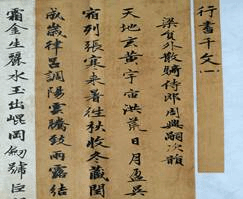 行書千文
梁員外散騎侍郎周興嗣次韻
天地玄黃宇宙洪荒日月盈昃
宿列張寒來暑往秋收冬藏閏
成歲律呂調陽雲騰致雨露結
霜金生麗水玉出崐岡劍號巨